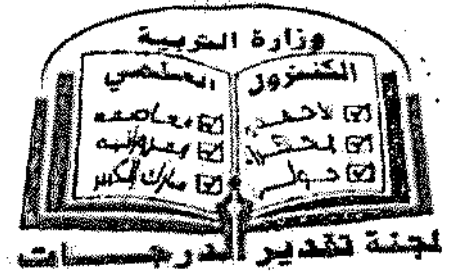 وزارة التربية
الكنترول العلمي
الأحمدي
حولي
مبارك الكبير
لجنة تقدير الدرجات